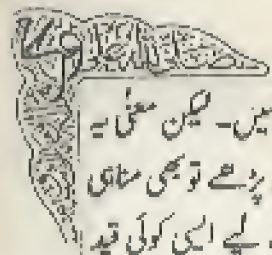 میں۔ لیکن معنی یہ
پڑھے تو بھی منافی
لیے ایسی کوئی قید